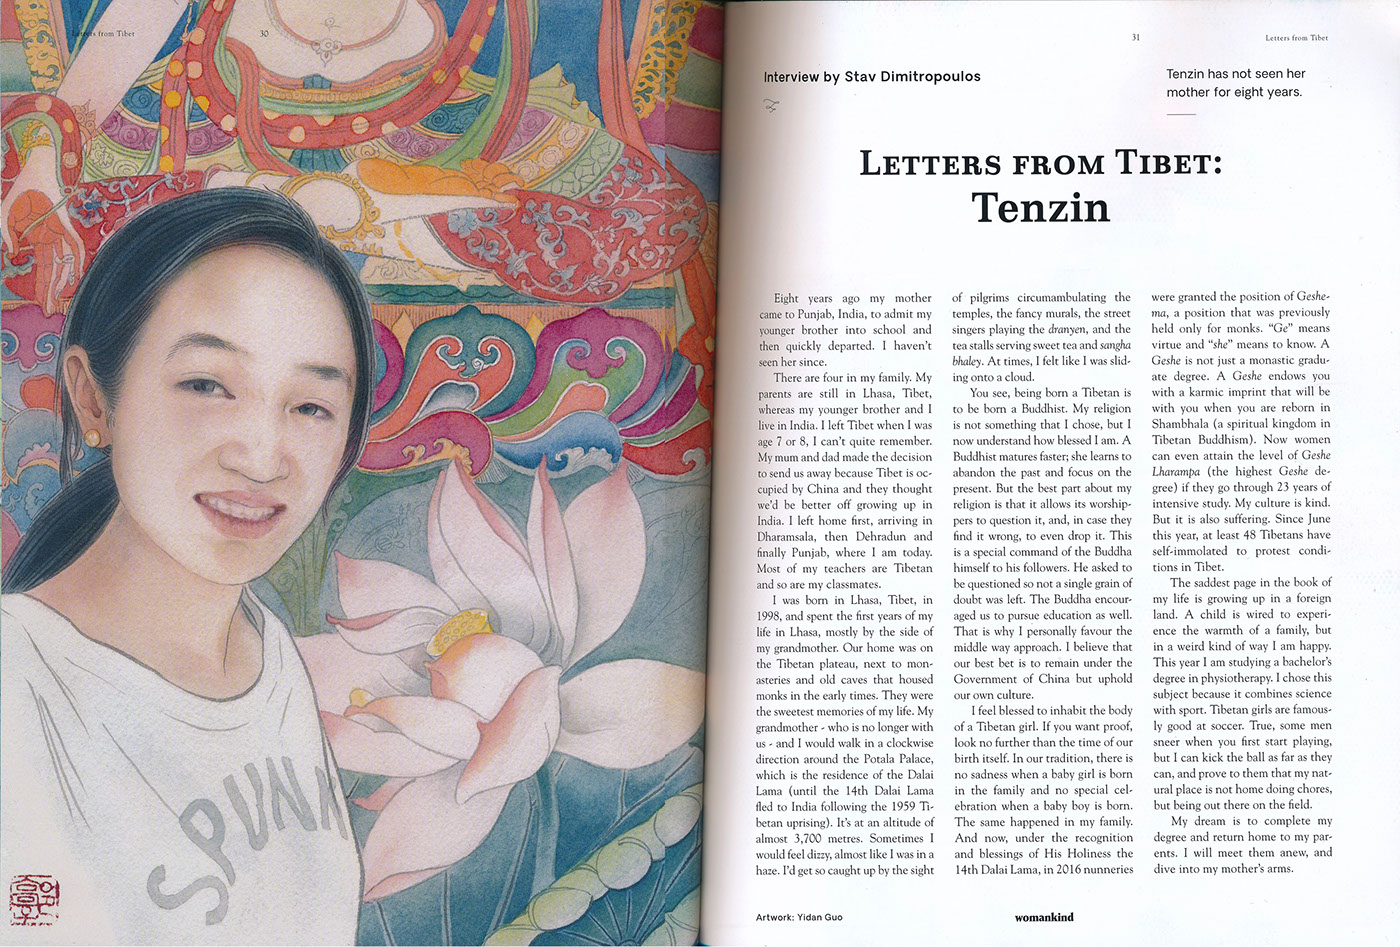 Letters from Tibet
30
SPUNK
31
Letters from Tibet
Interview by Stav Dimitropoulos
Tenzin has not seen her
mother for eight years.
LETTERS FROM TIBET:
Tenzin
Eight years ago my mother
came to Punjab, India, to admit my
younger brother into school and
then quickly departed. I haven't
seen her since.
There are four in my family. My
parents are still in Lhasa, Tibet,
whereas my younger brother and I
live in India. I left Tibet when I was
age 7 or 8, I can't quite remember.
My mum and dad made the decision
to send us away because Tibet is oc-
cupied by China and they thought
we'd be better off growing up in
India. I left home first, arriving in
Dharamsala, then Dehradun and
finally Punjab, where I am today.
Most of my teachers are Tibetan
and so are my classmates.
I was born in Lhasa, Tibet, in
1998, and spent the first years of my
life in Lhasa, mostly by the side of
my grandmother. Our home was on
the Tibetan plateau, next to mon-
asteries and old caves that housed
monks in the early times. They were
the sweetest memories of my life. My
grandmother - who is no longer with
us - and I would walk in a clockwise
direction around the Potala Palace,
which is the residence of the Dalai
Lama (until the 14th Dalai Lama
fled to India following the 1959 Ti-
betan uprising). It's at an altitude of
almost 3,700 metres. Sometimes I
would feel dizzy, almost like I was in a
haze. I'd get so caught up by the sight
of pilgrims circumambulating the
temples, the fancy murals, the street
singers playing the dranyen, and the
tea stalls serving sweet tea and sangha
bhaley. At times, I felt like I was slid-
ing onto a cloud.
You see, being born a Tibetan is
to be born a Buddhist. My religion
is not something that I chose, but I
now understand how blessed I am. A
Buddhist matures faster; she learns to
abandon the past and focus on the
present. But the best part about my
religion is that it allows its worship-
pers to question it, and, in case they
find it wrong, to even drop it. This
is a special command of the Buddha
himself to his followers. He asked to
be questioned so not a single grain of
doubt was left. The Buddha encour-
aged us to pursue education as well.
That is why I personally favour the
middle way approach. I believe that
our best bet is to remain under the
Government of China but uphold
our own culture.
I feel blessed to inhabit the body
of a Tibetan girl. If you want proof,
look no further than the time of our
birth itself. In our tradition, there is
no sadness when a baby girl is born
in the family and no special cel-
ebration when a baby boy is born.
The same happened in my family.
And now, under the recognition
and blessings of His Holiness the
14th Dalai Lama, in 2016 nunneries
were granted the position of Geshe-
ma, a position that was previously
held only for monks. "Ge" means
virtue and "she" means to know. A
Geshe is not just a monastic gradu-
ate degree. A Geshe endows you
with a karmic imprint that will be
with you when you are reborn in
Shambhala (a spiritual kingdom in
Tibetan Buddhism). Now women
can even attain the level of Geshe
Lharampa (the highest Geshe de-
gree) if they go through 23 years of
intensive study. My culture is kind.
But it is also suffering. Since June
this year, at least 48 Tibetans have
self-immolated to protest condi-
tions in Tibet.
The saddest page in the book of
my life is growing up in a foreign
land. A child is wired to experi-
ence the warmth of a family, but
in a weird kind of way I am happy.
This year I am studying a bachelor's
degree in physiotherapy. I chose this
subject because it combines science
with sport. Tibetan girls are famous-
ly good at soccer. True, some men
sneer when you first start playing,
but I can kick the ball as far as they
can, and prove to them that my nat-
ural place is not home doing chores,
but being out there on the field.
My dream is to complete my
degree and return home to my par-
ents. I will meet them anew, and
dive into my mother's arms.
Artwork: Yidan Guo
womankind